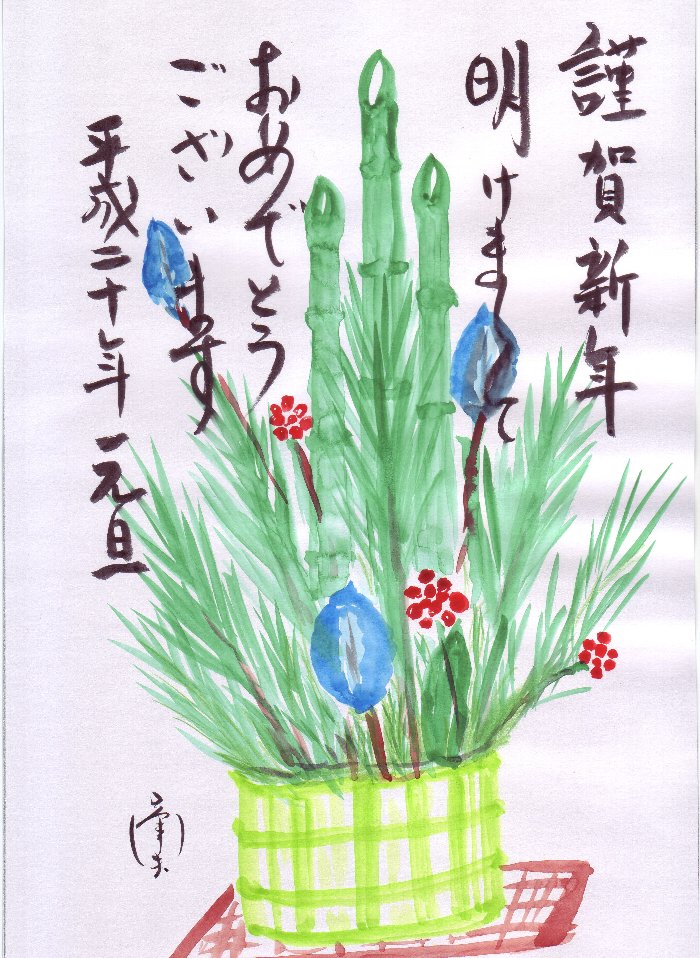 謹賀新年
明けまして
おめでとう
ございます
平成二十年 元旦